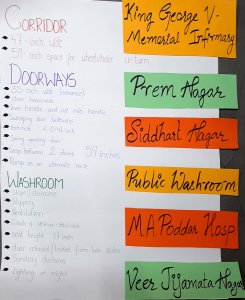 CORRIDOR
47-inch wide
59-inch space for wheelchair u-turn
DOORWAYS
35-inch wide (entrance)
Door heaviness
Lever handle and not knob handle
Swinging door hallways
Threshold
Living opening door
Gap between 2 doors 59 inches
Ramp as an alternate route
WASHROOM
Slipping
Ventilation
Seat height 17 inch
Door notional/locked from both sides
Sanitary dustbins
Lighting at night
King George V-
Memorial Infirmary
Prem Nagar
Siddharth Nagar
Public Washroom
M.A. Poddar Hosp.
Veer Jijamata Nagar